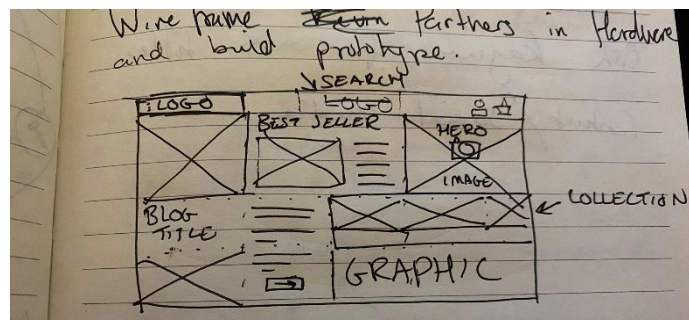 Wire frame Partners in Hardware
and build prototype.
SEARCH
LOGO LOGO
BEST SELLER
HERO
IMAGE
COLLECTION
BLOG
TITLE
GRAPHIC